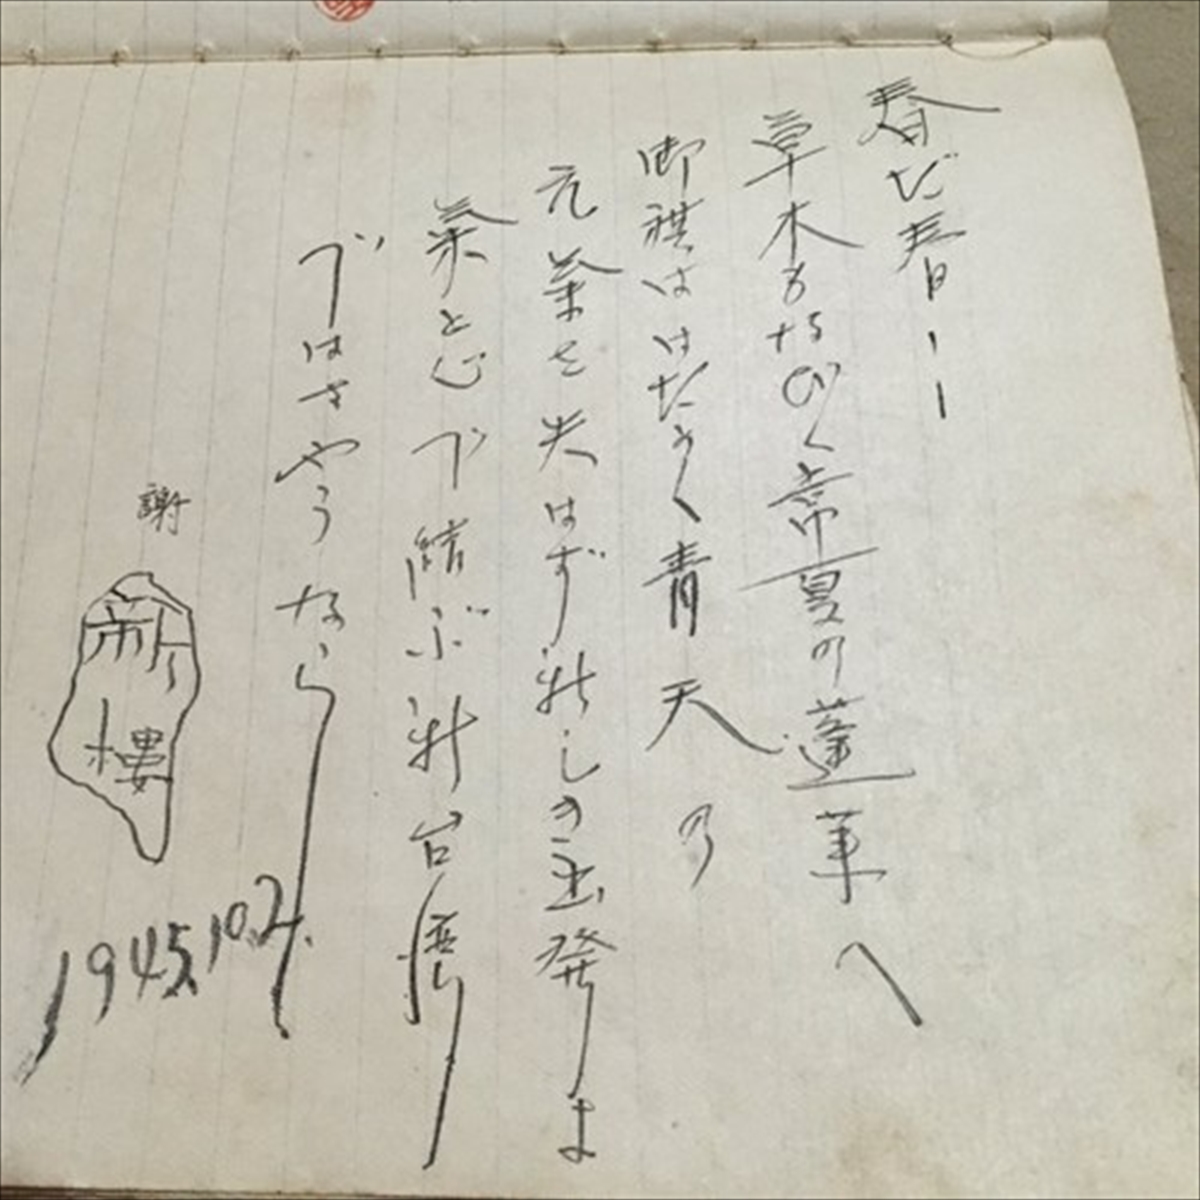 春だ春ーー
草木もなびく常夏の蓬莱へ
御旗ははためく青天の
元気を失はず新しき出発よ
氣と心で結ぶ新台湾
ではさやうなら
謝
新樓
1945.10.2